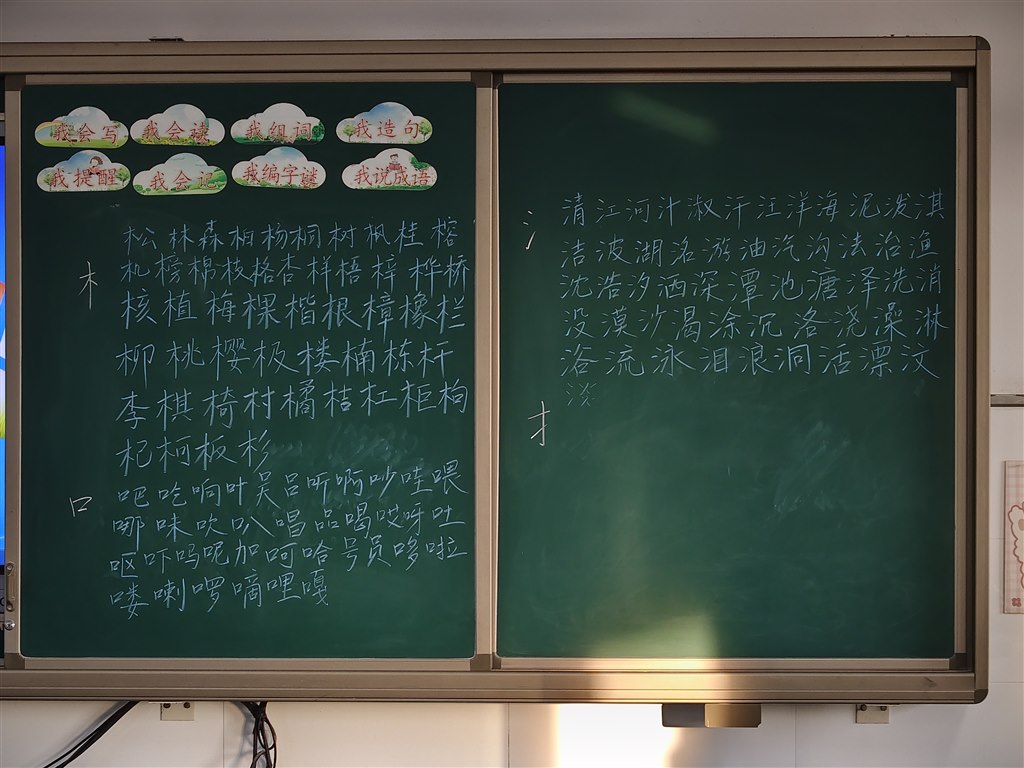 我会写 我会读 我组词 我造句
我提醒 我会记 我编字谜 我说成语
木
松林森柏杨桐树枫桂榕
机榜棉枝格杏样梧梓桦桥
核植梅棵楷根樟橡栏
柳桃樱极楼楠栋杆
李棋椅村橘桔杠柜枸
杞柯板杉
口
吧吃响叶吴吕听啊吵哇喂
哪味吹叭唱品喝哎呀吐
呕吓吗呢加呵哈号员哆啦
喽喇啰嘀哩嘎
氵
清江河汁淑汗汪洋海泥泼淇
洁波湖洺游油汽沟法治渔
沈浩汐洒深潭池溏泽洗消
没漠沙渴涂沉洛浇澡淋
浴流泳泪浪洞活漂汶
淡
扌